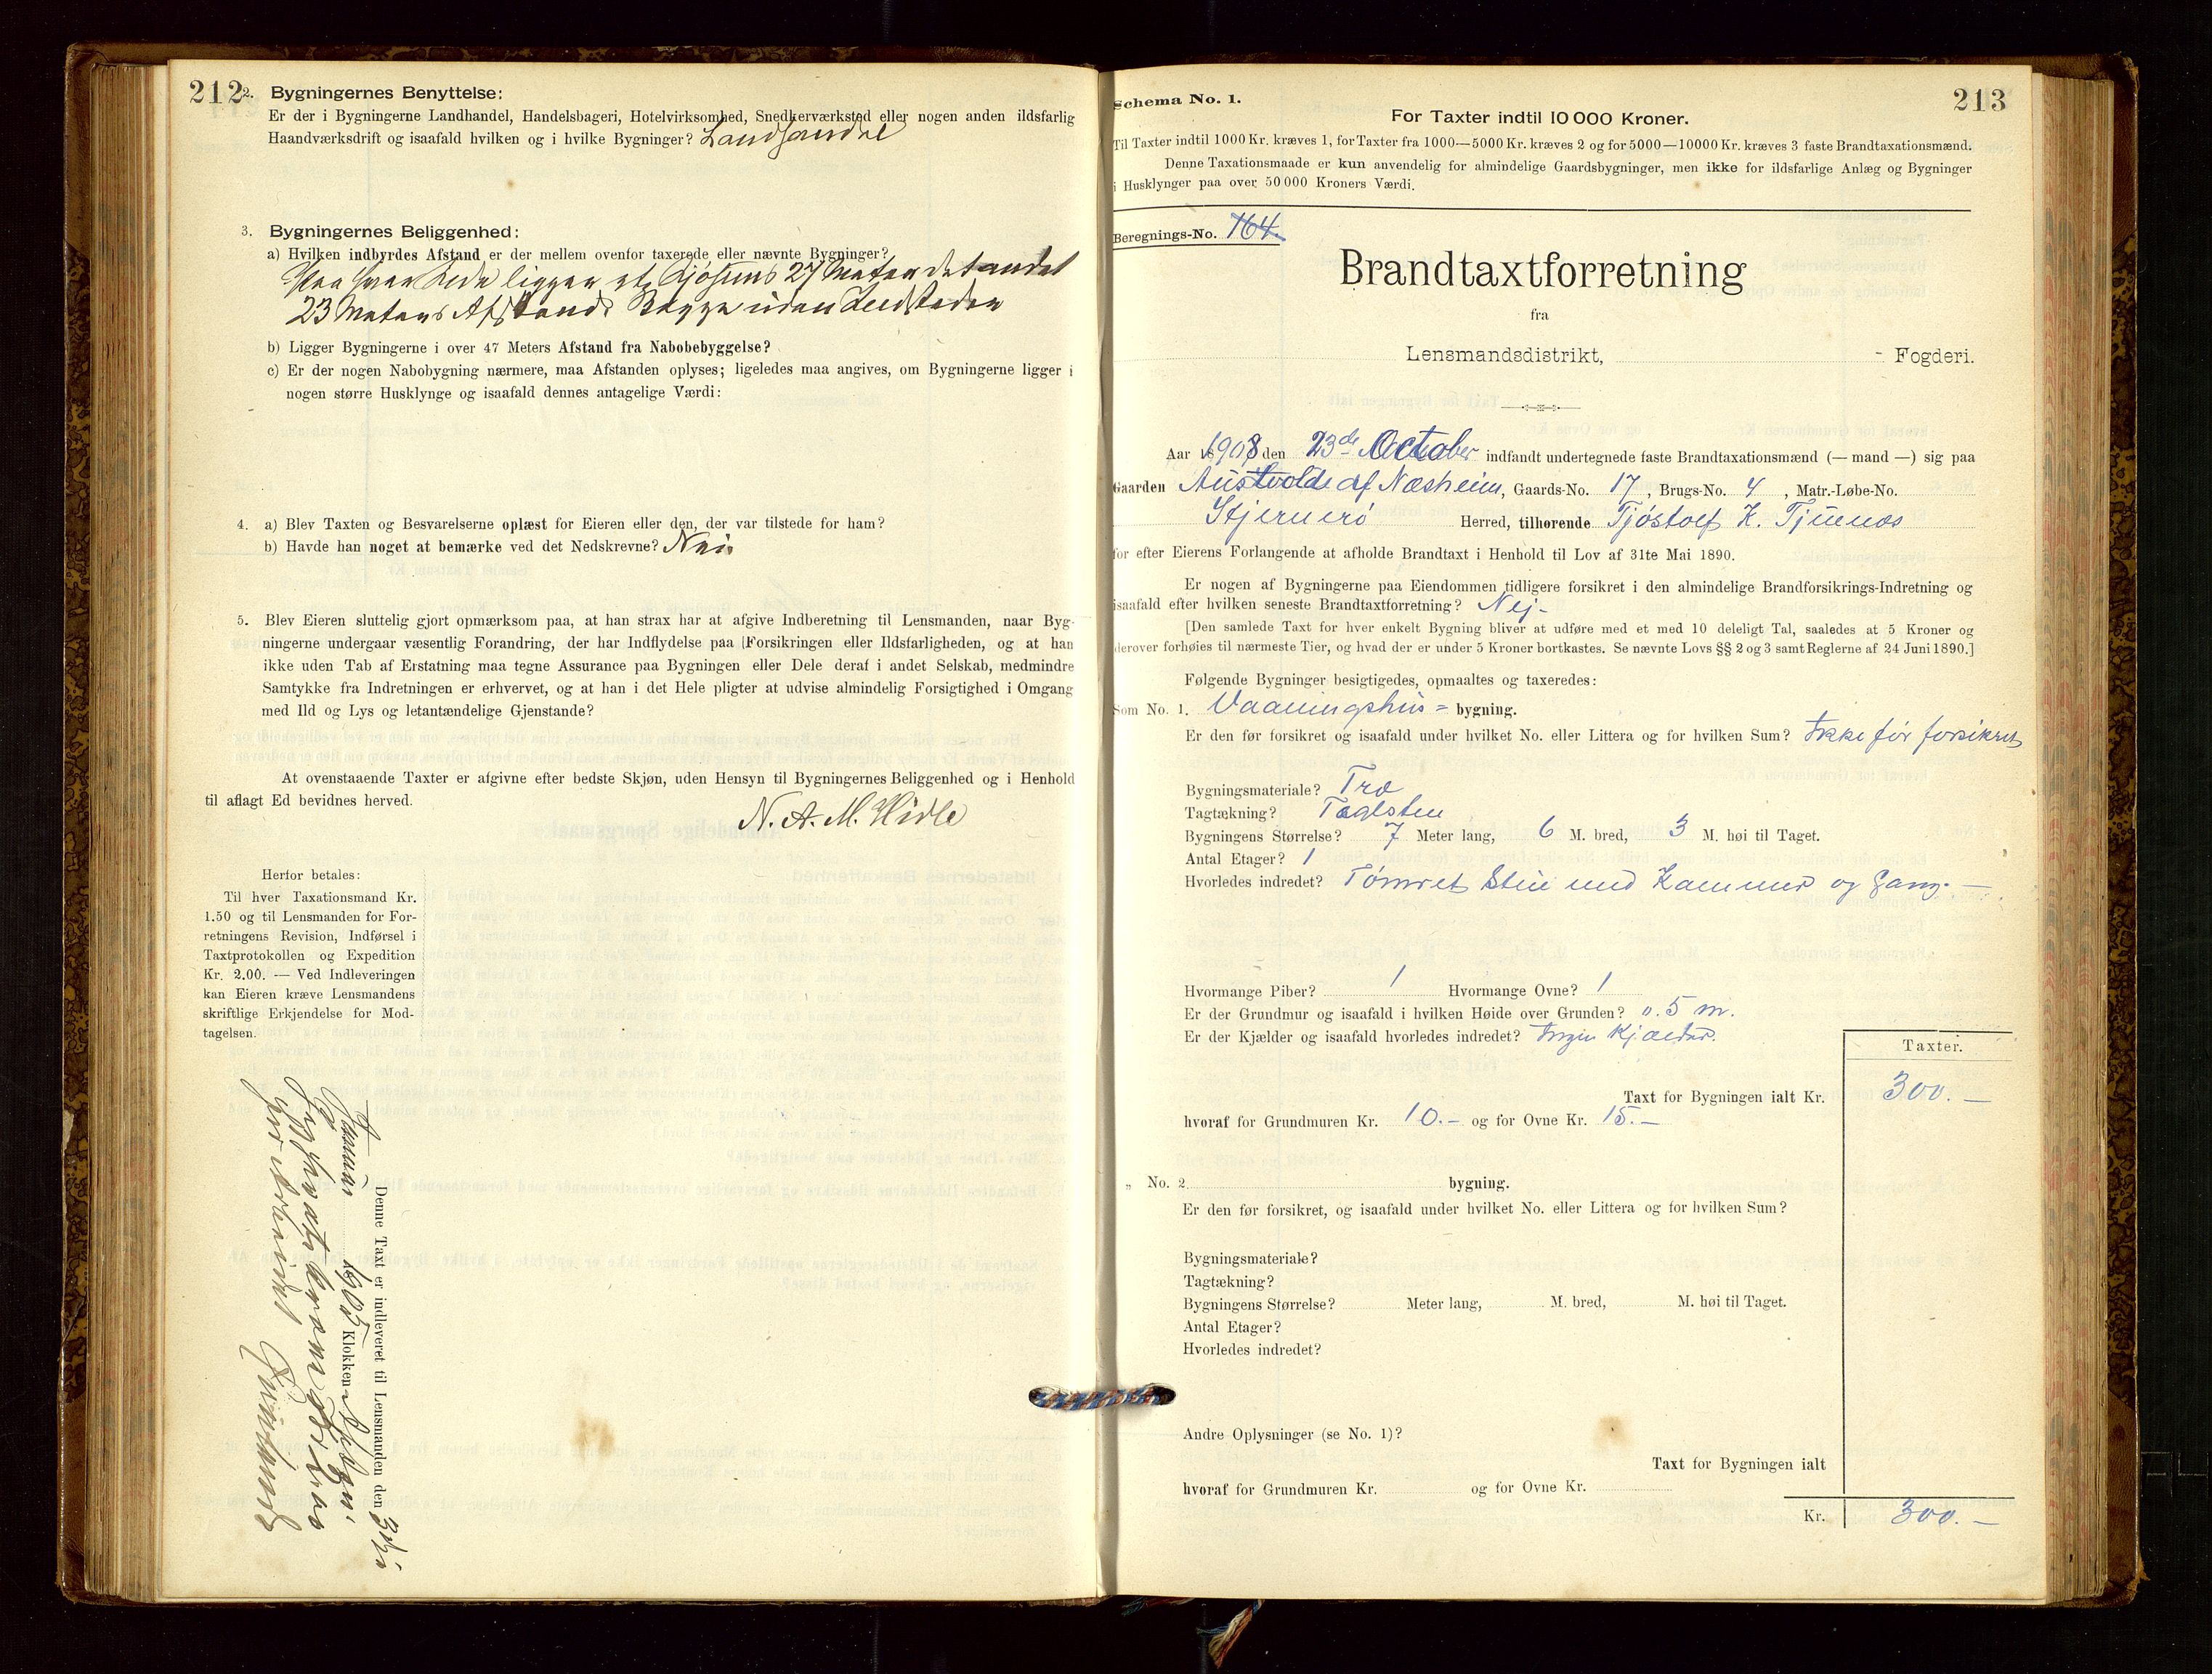 212
2. Bygningernes Benyttelse:
Er der i Bygningerne Landhandel, Handelsbageri, Hotelvirksomhed, Snedkerværksted eller nogen anden ildsfarlig
Haandværksdrift og isaafald hvilken og i hvilke Bygninger? Landhandel
3. Bygningernes Beliggenhed:
a) Hvilken indbyrdes Afstand er der mellem ovenfor taxerede eller nævnte Bygninger?
Paa hver Side ligger et Sjøhuus 27 Meter det andet
23 Meters Afstand Begge uden Ildsteder
b) Ligger Bygningerne i over 47 Meters Afstand fra Nabobebyggelse?
c) Er der nogen Nabobygning nærmere, maa Afstanden oplyses; ligeledes maa angives, om Bygningerne ligger i
nogen større Husklynge og isaafald dennes antagelige Værdi:
4. a) Blev Taxten og Besvarelserne oplæst for Eieren eller den, der var tilstede for ham?
b) Havde han noget at bemærke ved det Nedskrevne? Nei
5. Blev Eieren sluttelig gjort opmærksom paa, at han strax har at afgive Indberetning til Lensmanden, naar Byg-
ningerne undergaar væsentlig Forandring, der har Indflydelse paa Forsikringen eller Ildsfarligheden, og at han
ikke uden Tab af Erstatning maa tegne Assurance paa Bygningen eller Dele deraf i andet Selskab, medmindre
Samtykke fra Indretningen er erhvervet, og at han i det Hele pligter at udvise almindelig Forsigtighed i Omgang
med Ild og Lys og letantændelige Gjenstande?
At ovenstaaende Taxter er afgivne efter bedste Skjøn, uden Hensyn til Bygningernes Beliggenhed og i Henhold
til aflagt Ed bevidnes herved.
N. A. M. Hidle
Herfor betales:
Til hver Taxationsmand Kr.
1.50 og til Lensmanden for For-
retningens Revision, Indførsel i
Taxtprotokollen og Expedition
Kr. 2.00. — Ved Indleveringen
kan Eieren kræve Lensmandens
skriftlige Erkjendelse for Mod-
tagelsen.
Denne Taxt er indleveret til Lensmanden den 3die
Januar 1905 Klokken
213
Schema No. 1.
For Taxter indtil 10 000 Kroner.
Til Taxter indtil 1000 Kr. kræves 1, for Taxter fra 1000—5000 Kr. kræves 2 og for 5000—10000 Kr. kræves 3 faste Brandtaxationsmænd.
Denne Taxationsmaade er kun anvendelig for almindelige Gaardsbygninger, men ikke for ildsfarlige Anlæg og Bygninger
i Husklynger paa over 50 000 Kroners Værdi.
Beregnings-No. 164.
Brandtaxtforretning
fra
Lensmandsdistrikt, - Fogderi.
Aar 1908 den 23de October indfandt undertegnede faste Brandtaxationsmænd (— mand —) sig paa
Gaarden Austvolde af Næsheim, Gaards-No. 17, Brugs-No. 4, Matr.-Løbe-No.
Stjernerö Herred, tilhørende Tjöstolf K. Tjuenæs
for efter Eierens Forlangende at afholde Brandtaxt i Henhold til Lov af 31te Mai 1890.
Er nogen af Bygningerne paa Eiendommen tidligere forsikret i den almindelige Brandforsikrings-Indretning og
isaafald efter hvilken seneste Brandtaxtforretning? Nej-
[Den samlede Taxt for hver enkelt Bygning bliver at udføre med et med 10 deleligt Tal, saaledes at 5 Kroner og
derover forhøies til nærmeste Tier, og hvad der er under 5 Kroner bortkastes. Se nævnte Lovs §§ 2 og 3 samt Reglerne af 24 Juni 1890.]
Følgende Bygninger besigtigedes, opmaaltes og taxeredes:
Som No. 1. Vaaningshus = bygning.
Er den før forsikret og isaafald under hvilket No. eller Littera og for hvilken Sum? Ikke før forsikret
Bygningsmateriale? Træ
Tagtækning? Taglsten
Bygningens Størrelse? 7 Meter lang, 6 M. bred, 3 M. høi til Taget.
Antal Etager? 1
Hvorledes indredet? Tömret Stue med Kammer og Gang. —
Hvormange Piber? 1 Hvormange Ovne? 1
Er der Grundmur og isaafald i hvilken Høide over Grunden? 0.5 m.
Er der Kjælder og isaafald hvorledes indredet? Ingen Kjælder.
Taxter.
Taxt for Bygningen ialt Kr. 300. —
hvoraf for Grundmuren Kr. 10.— og for Ovne Kr. 15.—
„ No. 2 bygning.
Er den før forsikret, og isaafald under hvilket No. eller Littera og for hvilken Sum?
Bygningsmateriale?
Tagtækning?
Bygningens Størrelse? Meter lang, M. bred, M. høi til Taget.
Antal Etager?
Hvorledes indredet?
Andre Oplysninger (se No. 1)?
Taxt for Bygningen ialt
hvoraf for Grundmuren Kr. og for Ovne Kr.
Kr. 300. —